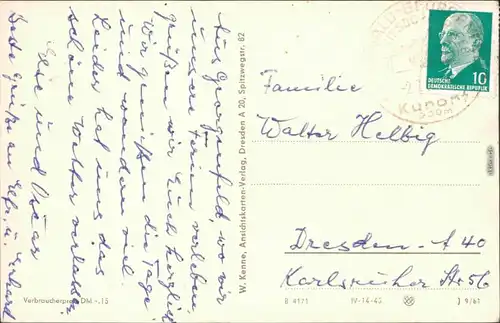 Aus Georgenfeld, wo wir
unsere Ferien verleben,
grüßen wir Euch herzlich
Wir genießen die Tage
und wandern viel.
Leider hat uns das
schöne Wetter verlassen
Else und Oskar
Gute Grüße an Elfr. u. Erhard
W. Kenne, Ansichtskarten-Verlag, Dresden A 20, Spitzwegstr. 82
DEUTSCHE
DEMOKRATISCHE REPUBLIK
10
Kurort
Familie
Walter Helbig
Dresden-A 40
Karlsruher Str 56
Verbraucherpreis DM -,15
B 4171
IV-14-45
J 9/61